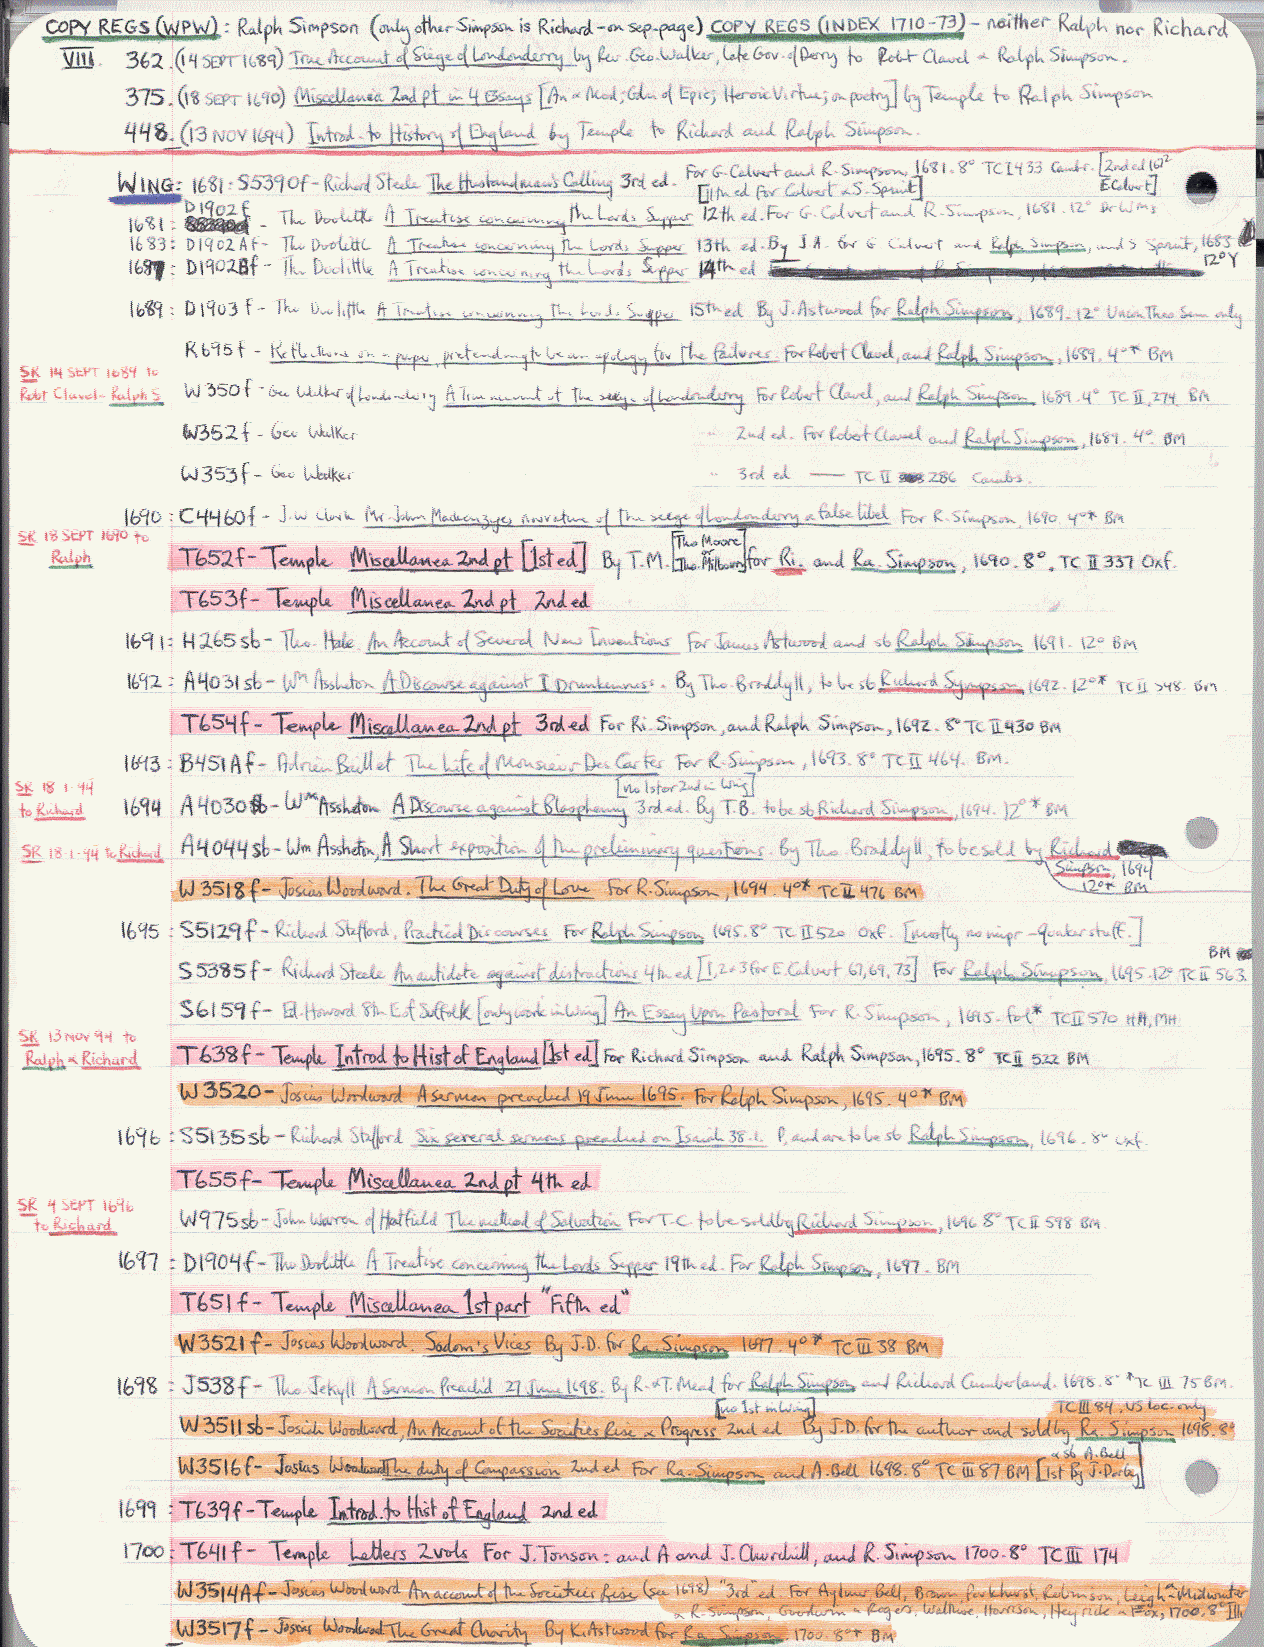 COPY REGS (WPW): Ralph Simpson (only other Simpson is Richard - on sep. page) COPY REGS (INDEX 1710-73) - neither Ralph nor Richard
VIII. 362. (14 SEPT 1689) True Account of Siege of Londonderry by Rev. Geo. Walker, late Gov. of Derry to Robt Clavel & Ralph Simpson.
375. (18 SEPT 1690) Miscellanea 2nd pt in 4 Essays [An & Mod; Gdn of Epic; Heroic Virtue; on poetry] by Temple to Ralph Simpson
448. (13 NOV 1694) Introd. to History of England by Temple to Richard and Ralph Simpson.
WING: 1681: S5390f - Richard Steele The Husbandman's Calling 3rd ed. For G. Calvert and R. Simpson, 1681. 8° TC I 433 Cambr. [2nd ed 1672 E Calvert]
[11th ed for Calvert & S. Sprint]
1681: D1902f - Tho Doolittle A Treatise concerning the Lords Supper 12th ed. For G. Calvert and R. Simpson, 1681. 12° Dr Wms
1683: D1902Af - Tho Doolittle A Treatise concerning the Lords Supper 13th ed. By J.A. for G Calvert and Ralph Simpson, and S Sprint, 1683
12° Y
1687: D1902Bf - Tho Doolittle A Treatise concerning the Lords Supper 14th ed
1689: D1903f - Tho Doolittle A Treatise concerning the Lords Supper 15th ed By J. Astwood for Ralph Simpson, 1689. 12° Union Theo Sem only
R695f - Reflections on a paper, pretending to be an apology for the failures. For Robert Clavel, and Ralph Simpson, 1689. 4°* BM
SK 14 SEPT 1689 to
Robt Clavel - Ralph S
W350f - Geo Walker of Londonderry A True account of the seige of Londonderry For Robert Clavel, and Ralph Simpson, 1689. 4° TC II, 274. BM
W352f - Geo Walker " 2nd ed. For Robert Clavel and Ralph Simpson, 1689. 4°. BM
W353f - Geo Walker " 3rd ed — TC II 286 Cambs.
1690: C4460f - J.W. Clark Mr. John Mackenzyes narrative of the seige of Londonderry a false libel For R. Simpson, 1690. 4°* BM
SK 18 SEPT 1690 to
Ralph
T652f - Temple Miscellanea 2nd pt [1st ed] By T.M. [Tho Moore or Tho. Milbourn] for Ri. and Ra. Simpson, 1690. 8°. TC II 337 Oxf.
T653f - Temple Miscellanea 2nd pt 2nd ed
1691: H265sb - Tho. Hale An Account of Several New Inventions For James Astwood and sb Ralph Simpson 1691. 12° BM
1692: A4031sb - Wm Assheton A Discourse against I Drunkenness. By Tho. Braddyll, to be sb Richard Sympson, 1692. 12°* TC II 398. BM
T654f - Temple Miscellanea 2nd pt 3rd ed For Ri. Simpson, and Ralph Simpson, 1692. 8° TC II 430 BM
1693: B451Af - Adrien Baillet The Life of Monsieur Des Cartes For R. Simpson, 1693. 8° TC II 464. BM.
SK 18-1-94
to Richard
[no 1st or 2nd in Wing]
1694 A4030sb - Wm Assheton A Discourse against Blasphemy 3rd ed. By T.B. to be sb Richard Simpson, 1694. 12°* BM
SK 18-1-94 to Richard
A4044sb - Wm Assheton, A Short exposition of the preliminary questions. By Tho. Braddyll, to be sold by Richard
Simpson, 1694
12°* BM
W3518f - Josias Woodward. The Great Duty of Love For R. Simpson, 1694. 4°* TC II 476 BM
1695: S5129f - Richard Stafford, Practical Discourses For Ralph Simpson 1695. 8° TC II 520 Oxf. [mostly no impr - quaker stuff.]
BM
S5385f - Richard Steele An antidote against distractions 4th ed [1, 2 & 3 for E. Calvert 67, 69, 73] For Ralph Simpson, 1695. 12° TC II 563.
S6159f - Ed. Howard 8th E of Suffolk [only work in Wing] An Essay Upon Pastoral For R. Simpson, 1695. fol* TC II 570 HH, MH
SK 13 NOV 94 to
Ralph & Richard
T638f - Temple Introd to Hist of England [1st ed] For Richard Simpson and Ralph Simpson, 1695. 8° TC II 522 BM
W3520 - Josias Woodward A sermon preached 19 June 1695. For Ralph Simpson, 1695. 4°* BM
1696: S5135sb - Richard Stafford Six several sermons preached on Isaiah 38.1. P, and are to be sb Ralph Simpson, 1696. 8° Oxf.
T655f - Temple Miscellanea 2nd pt 4th ed
SK 4 SEPT 1696
to Richard
W975sb - John Warren of Hatfield The method of Salvation For T.C. to be sold by Richard Simpson, 1696 8° TC II 598 BM.
1697: D1904f - Tho Doolittle A Treatise concerning the Lords Supper 19th ed. For Ralph Simpson, 1697. BM
T651f - Temple Miscellanea 1st part "Fifth ed"
W3521f - Josias Woodward. Sodom's Vices By J.D. for Ra. Simpson 1697. 4°* TC III 38 BM
1698: J538f - Tho. Jekyll A Sermon Preach'd 27 June 1698. By R. & T. Mead for Ralph Simpson and Richard Cumberland. 1698. 8°* TC III 75 BM.
[no 1st in Wing] TC III 84, US loc. only
W3511sb - Josiah Woodward, An Account of the Societies Rise & Progress 2nd ed By J.D. for the author and sold by Ra. Simpson 1698. 8°
& sb A. Bell
W3516f - Josias Woodward The duty of Compassion 2nd ed For Ra. Simpson and A. Bell 1698. 8° TC III 87 BM [1st By J. Darby]
1699: T639f - Temple Introd. to Hist of England 2nd ed
1700: T641f - Temple Letters 2 vols For J. Tonson: and A and J. Churchill, and R. Simpson 1700. 8° TC III 174
W3514Af - Josias Woodward An account of the Societies Rise (see 1698) "3rd" ed. For Aylmer Bell, Brown, Parkhurst, Robinson, Leigh & Midwinter
& R. Simpson, Goodwin & Rogers, Walthoe, Harrison, Heyrick & Fox, 1700. 8° Ill
W3517f - Josias Woodward The Great Charity By K. Astwood for Ra. Simpson 1700. 8°* BM